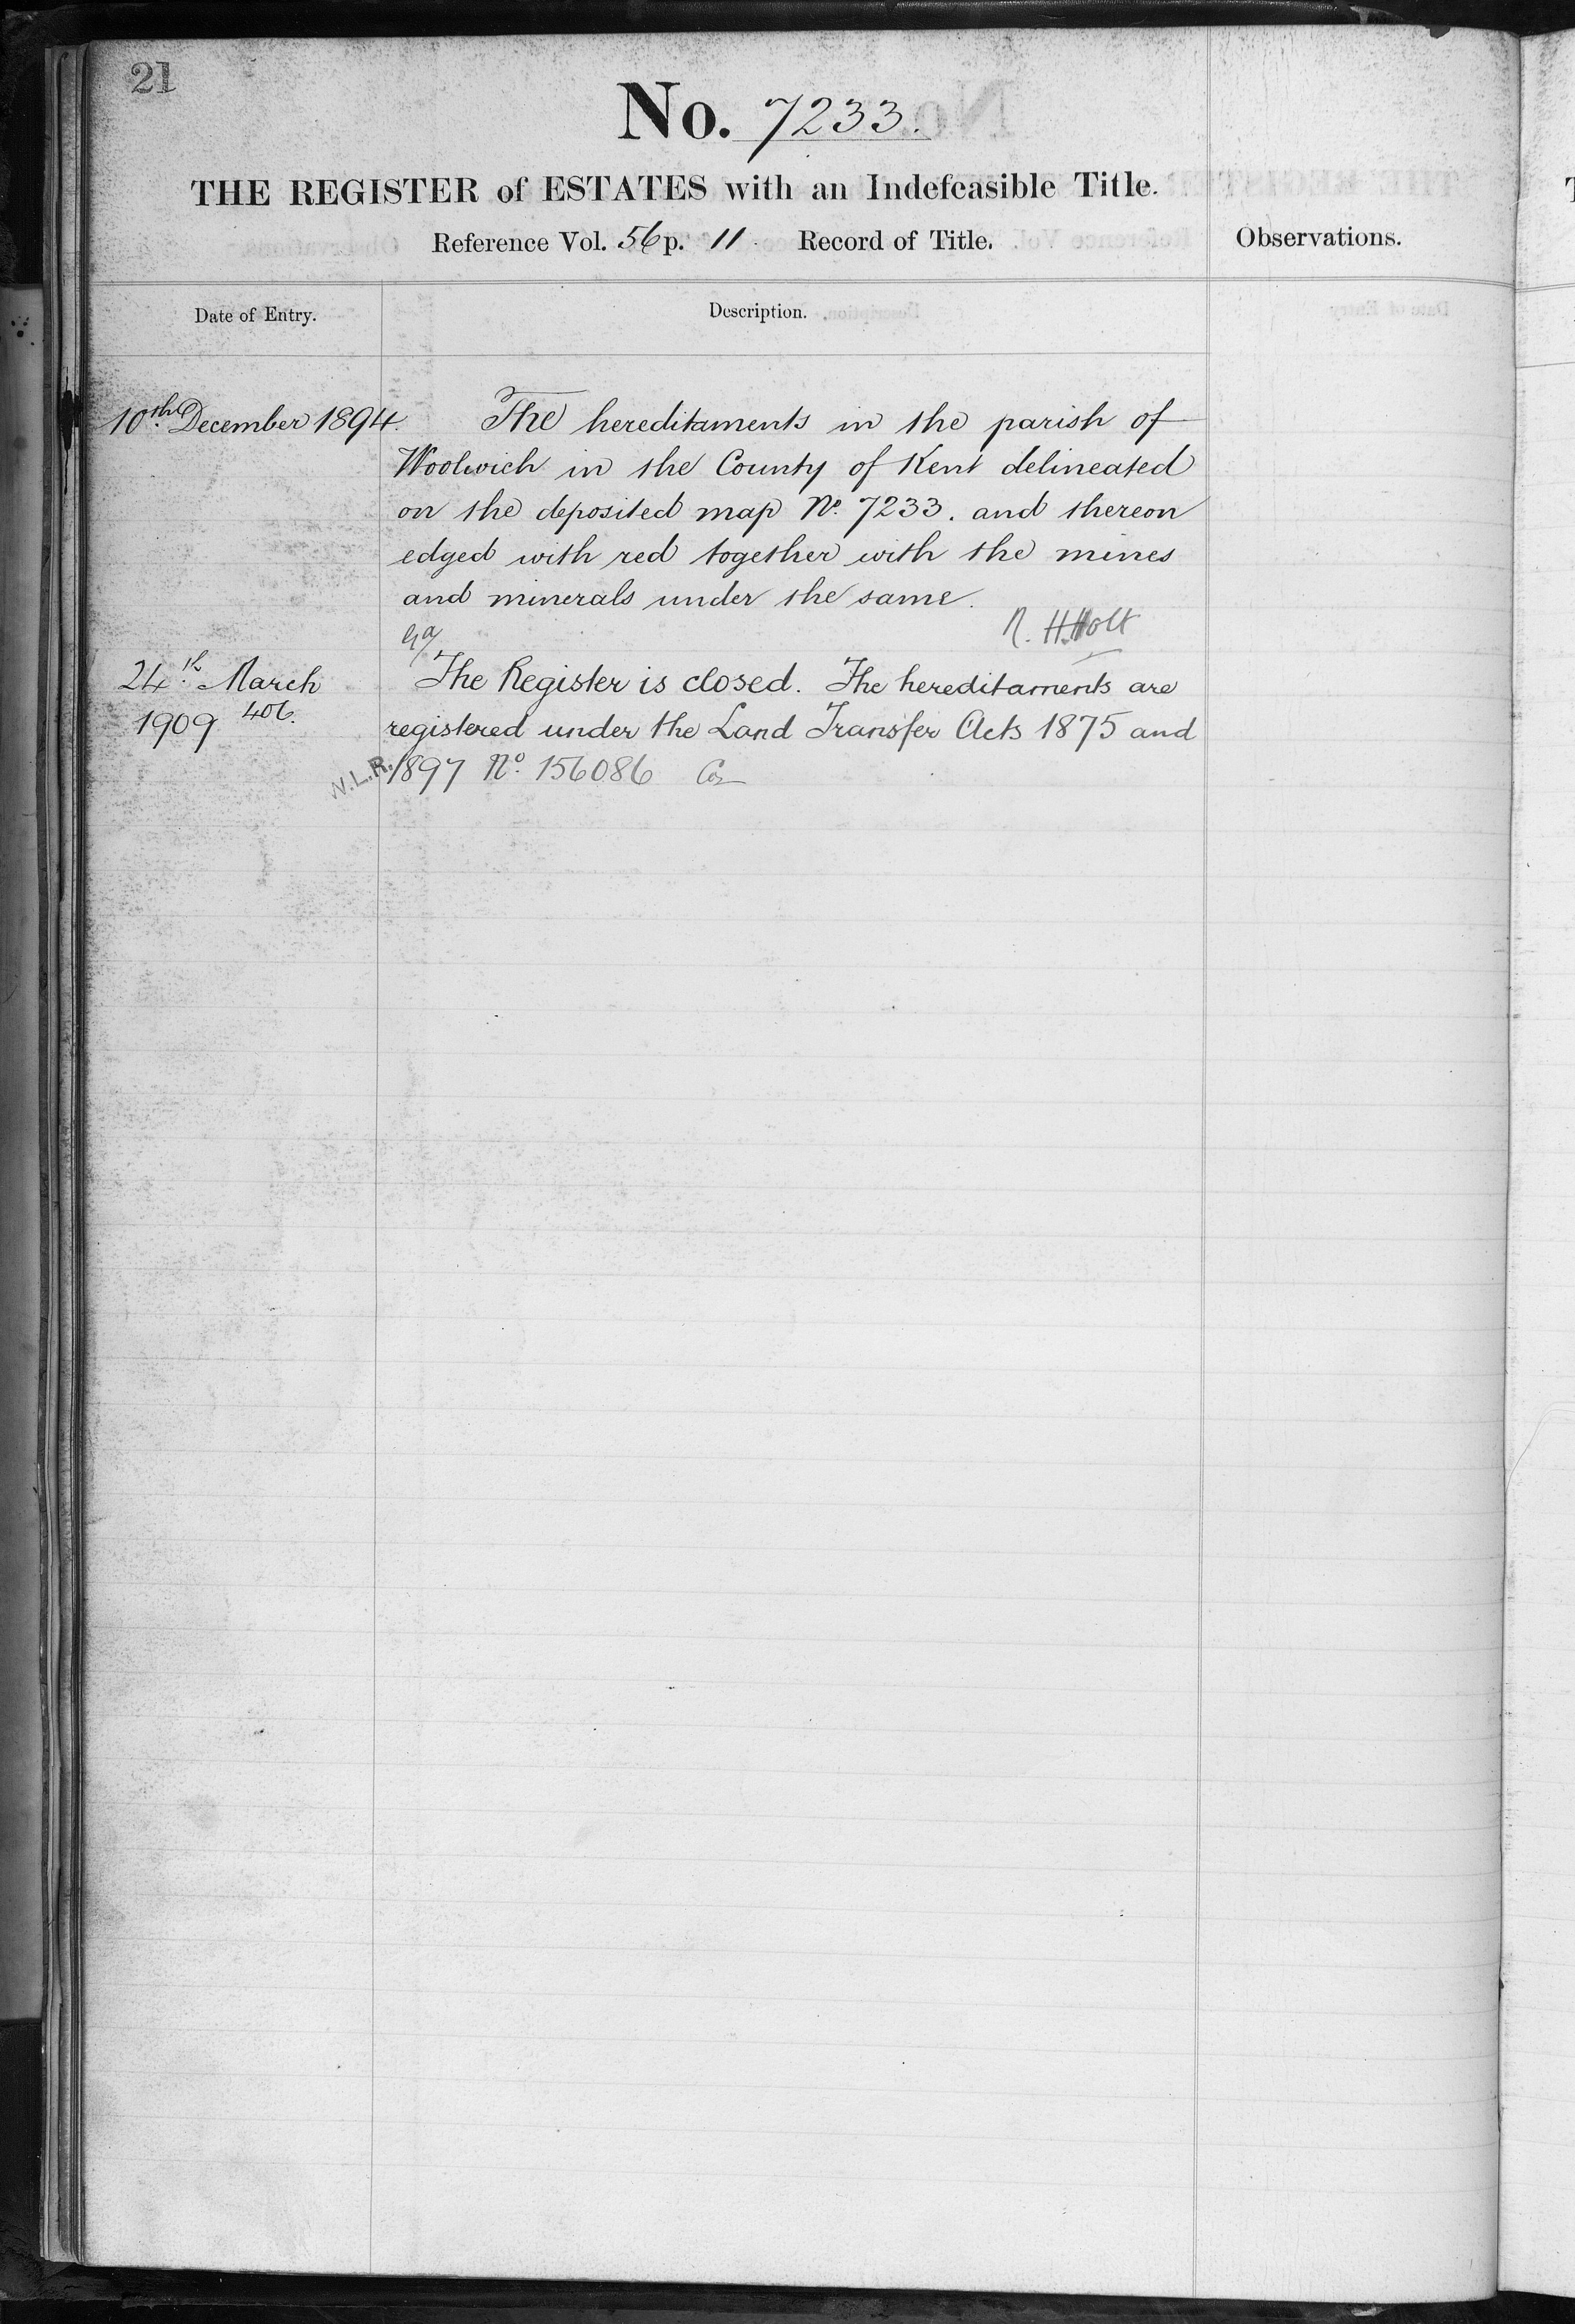 21
No. 7233.
THE REGISTER of ESTATES with an Indefeasible Title.
Reference Vol. 56 p. 11 Record of Title.
Observations.
Date of Entry.
Description.
10th December 1894.
The hereditaments in the parish of
Woolwich in the County of Kent delineated
on the deposited map No. 7233. and thereon
edged with red together with the mines
and minerals under the same.
R. H. Holt
24th March
1909 406.
The Register is closed. The hereditaments are
registered under the Land Transfer Acts 1875 and
N.L.R. 1897 No. 156086